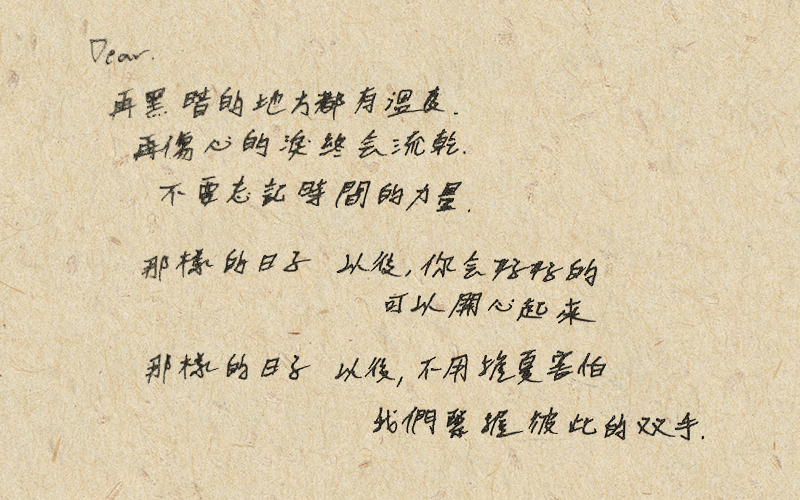 Dear.
再黑暗的地方都有溫度.
再傷心的淚終会流乾.
不要忘記時間的力量.
那樣的日子 以後,你会好好的
可以開心起來
那樣的日子 以後,不用擔憂害怕
我們緊握彼此的双手.